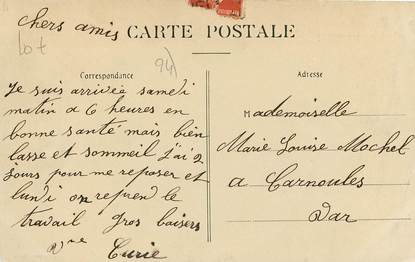 chers amis
CARTE POSTALE
Lot
94)
Correspondance
Je suis arrivée samedi
matin a 6 heures en
bonne santé mais bien
lasse et sommeil j'ai 2
Jours pour me reposer et
lundi on reprend le
travail gros baisers
Vve Curie
Adresse
Mademoiselle
Marie Louise Mochel
a Carnoules
Var